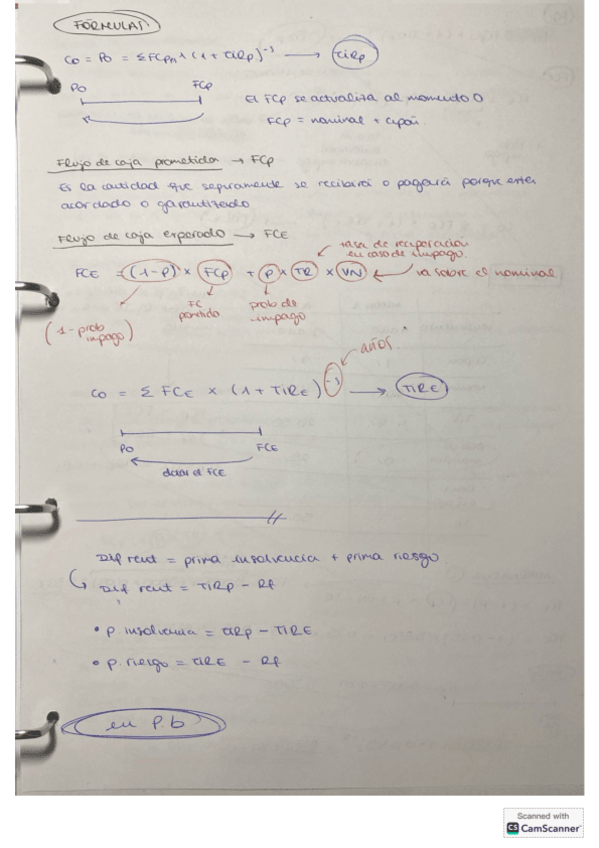 FÓRMULAS
C0 = P0 = ΣFCPn × (1 + TIRp)^-s → TIRp
P0 FCp
El FCp se actualiza al momento 0
FCp = nominal + cupón.
Flujo de caja prometido → FCp
Es la cantidad que seguramente se recibirá o pagará porque estás
acordado o garantizado
Flujo de caja esperado → FCE
tasa de recuperación
en caso de impago.
FCE = (1-P) × FCp + P × TR × VN ← va sobre el nominal
(1-prob
impago)
FC
prob de
impago
años.
C0 = Σ FCE × (1 + TIRE)^-s → TIRE
P0 FCE
FCE
Dif rent = prima insolvencia + prima riesgo.
Dif rent = TIRp - Rf
• P. insolvencia = TIRp - TIRE
• P. riesgo = TIRE - Rf
en P.b
Scanned with
CS CamScanner